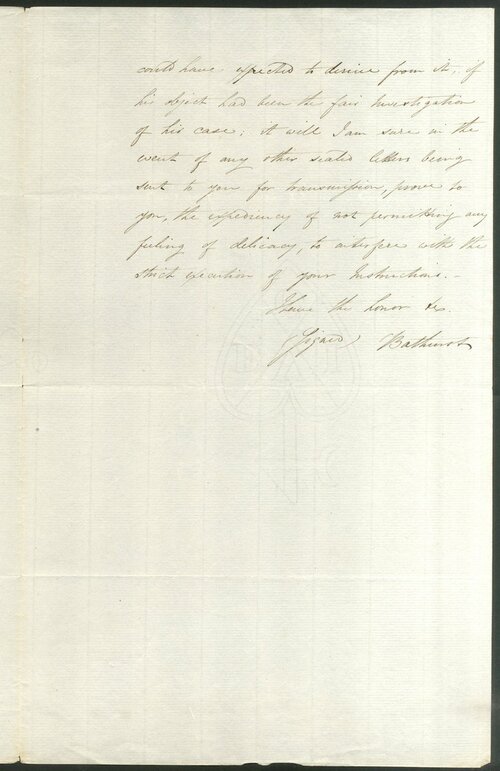 could have expected to derive from it, if
his object had been the fair Investigation
of his case; it will I am sure in the
event of any other sealed letters being
sent to you for transmission, prove to
you, the expediency of not permitting any
feeling of delicacy, to interfere with the
strict execution of your Instructions.—
I have the honor &c.
(Signed) Bathurst